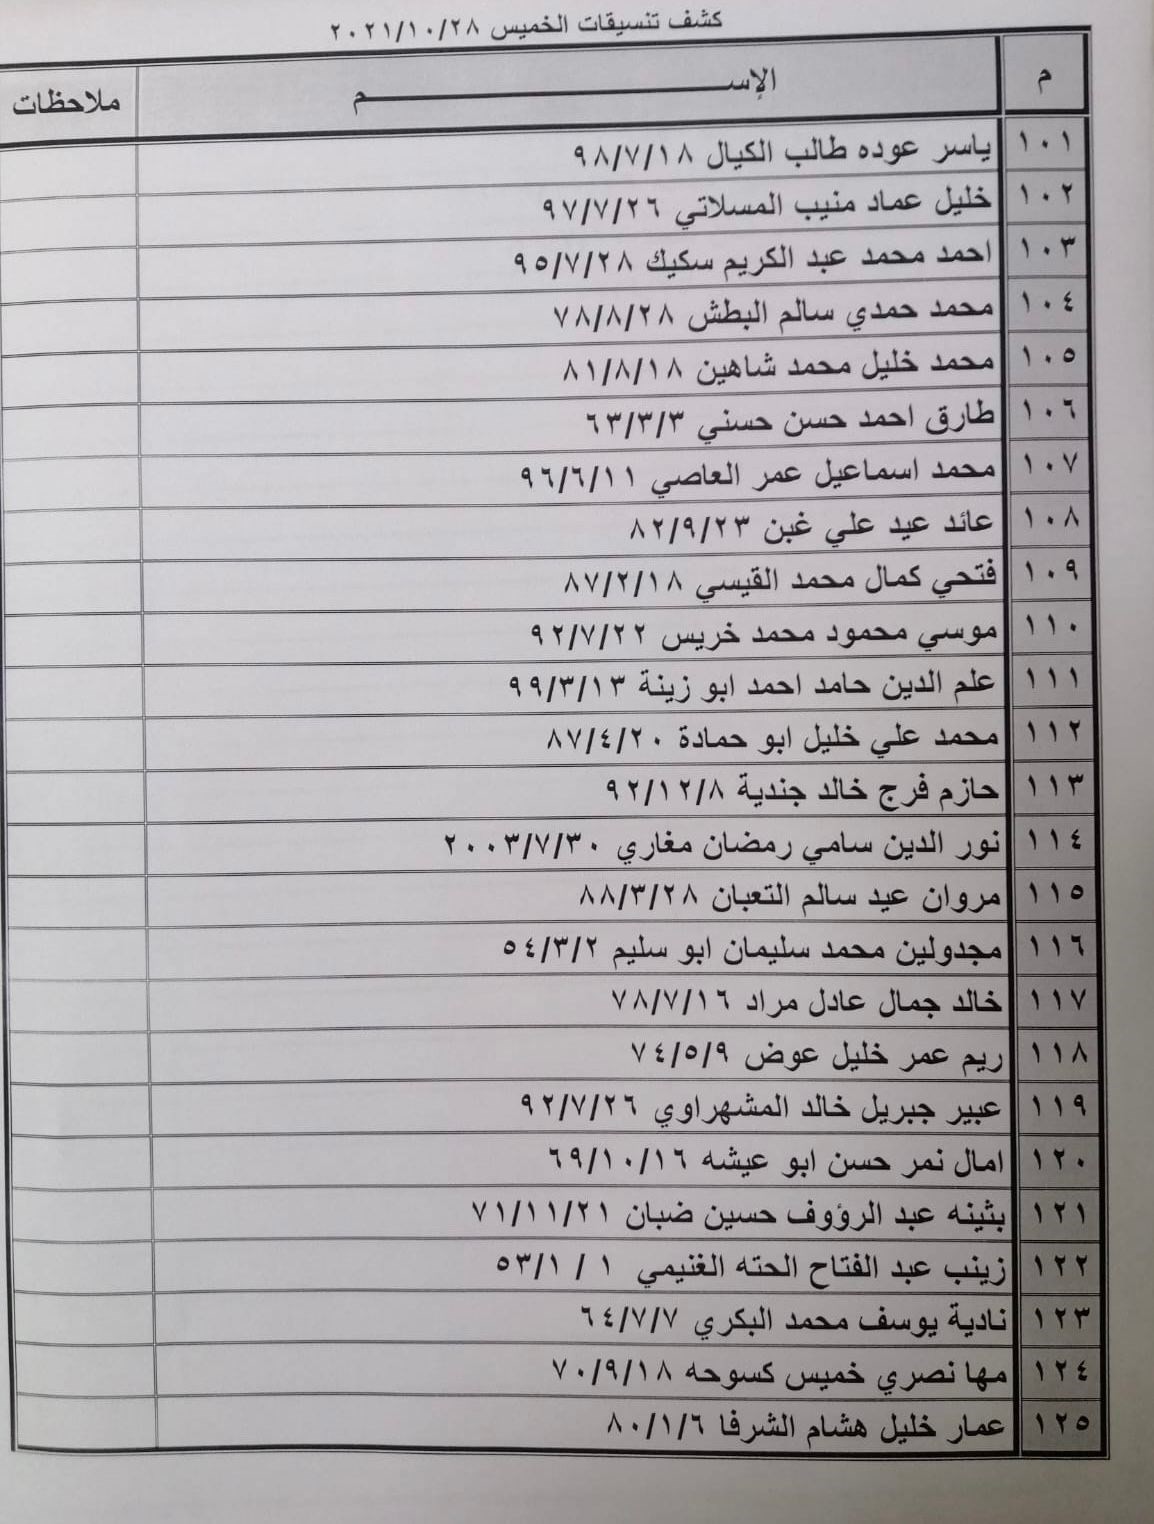 كشف تنسيقات الخميس ٢٠٢١/١٠/٢٨
م الإســـــــــم ملاحظات
١٠١ ياسر عوده طالب الكيال ٩٨/٧/١٨
١٠٢ خليل عماد منيب المسلاتي ٩٧/٧/٢٦
١٠٣ احمد محمد عبد الكريم سكيك ٩٥/٧/٢٨
١٠٤ محمد حمدي سالم البطش ٧٨/٨/٢٨
١٠٥ محمد خليل محمد شاهين ٨١/٨/١٨
١٠٦ طارق احمد حسن حسني ٦٣/٣/٣
١٠٧ محمد اسماعيل عمر العاصي ٩٦/٦/١١
١٠٨ عائد عيد علي غبن ٨٢/٩/٢٣
١٠٩ فتحي كمال محمد القيسي ٨٧/٢/١٨
١١٠ موسي محمود محمد خريس ٩٢/٧/٢٢
١١١ علم الدين حامد احمد ابو زينة ٩٩/٣/١٣
١١٢ محمد علي خليل ابو حمادة ٨٧/٤/٢٠
١١٣ حازم فرج خالد جندية ٩٢/١٢/٨
١١٤ نور الدين سامي رمضان مغاري ٢٠٠٣/٧/٣٠
١١٥ مروان عيد سالم التعبان ٨٨/٣/٢٨
١١٦ مجدولين محمد سليمان ابو سليم ٥٤/٣/٢
١١٧ خالد جمال عادل مراد ٧٨/٧/١٦
١١٨ ريم عمر خليل عوض ٧٤/٥/٩
١١٩ عبير جبريل خالد المشهراوي ٩٢/٧/٢٦
١٢٠ امال نمر حسن ابو عيشه ٦٩/١٠/١٦
١٢١ بثينه عبد الرؤوف حسين ضبان ٧١/١١/٢١
١٢٢ زينب عبد الفتاح الحته الغنيمي ٥٣/١/ ١
١٢٣ نادية يوسف محمد البكري ٦٤/٧/٧
١٢٤ مها نصري خميس كسوحه ٧٠/٩/١٨
١٢٥ عمار خليل هشام الشرفا ٨٠/١/٦